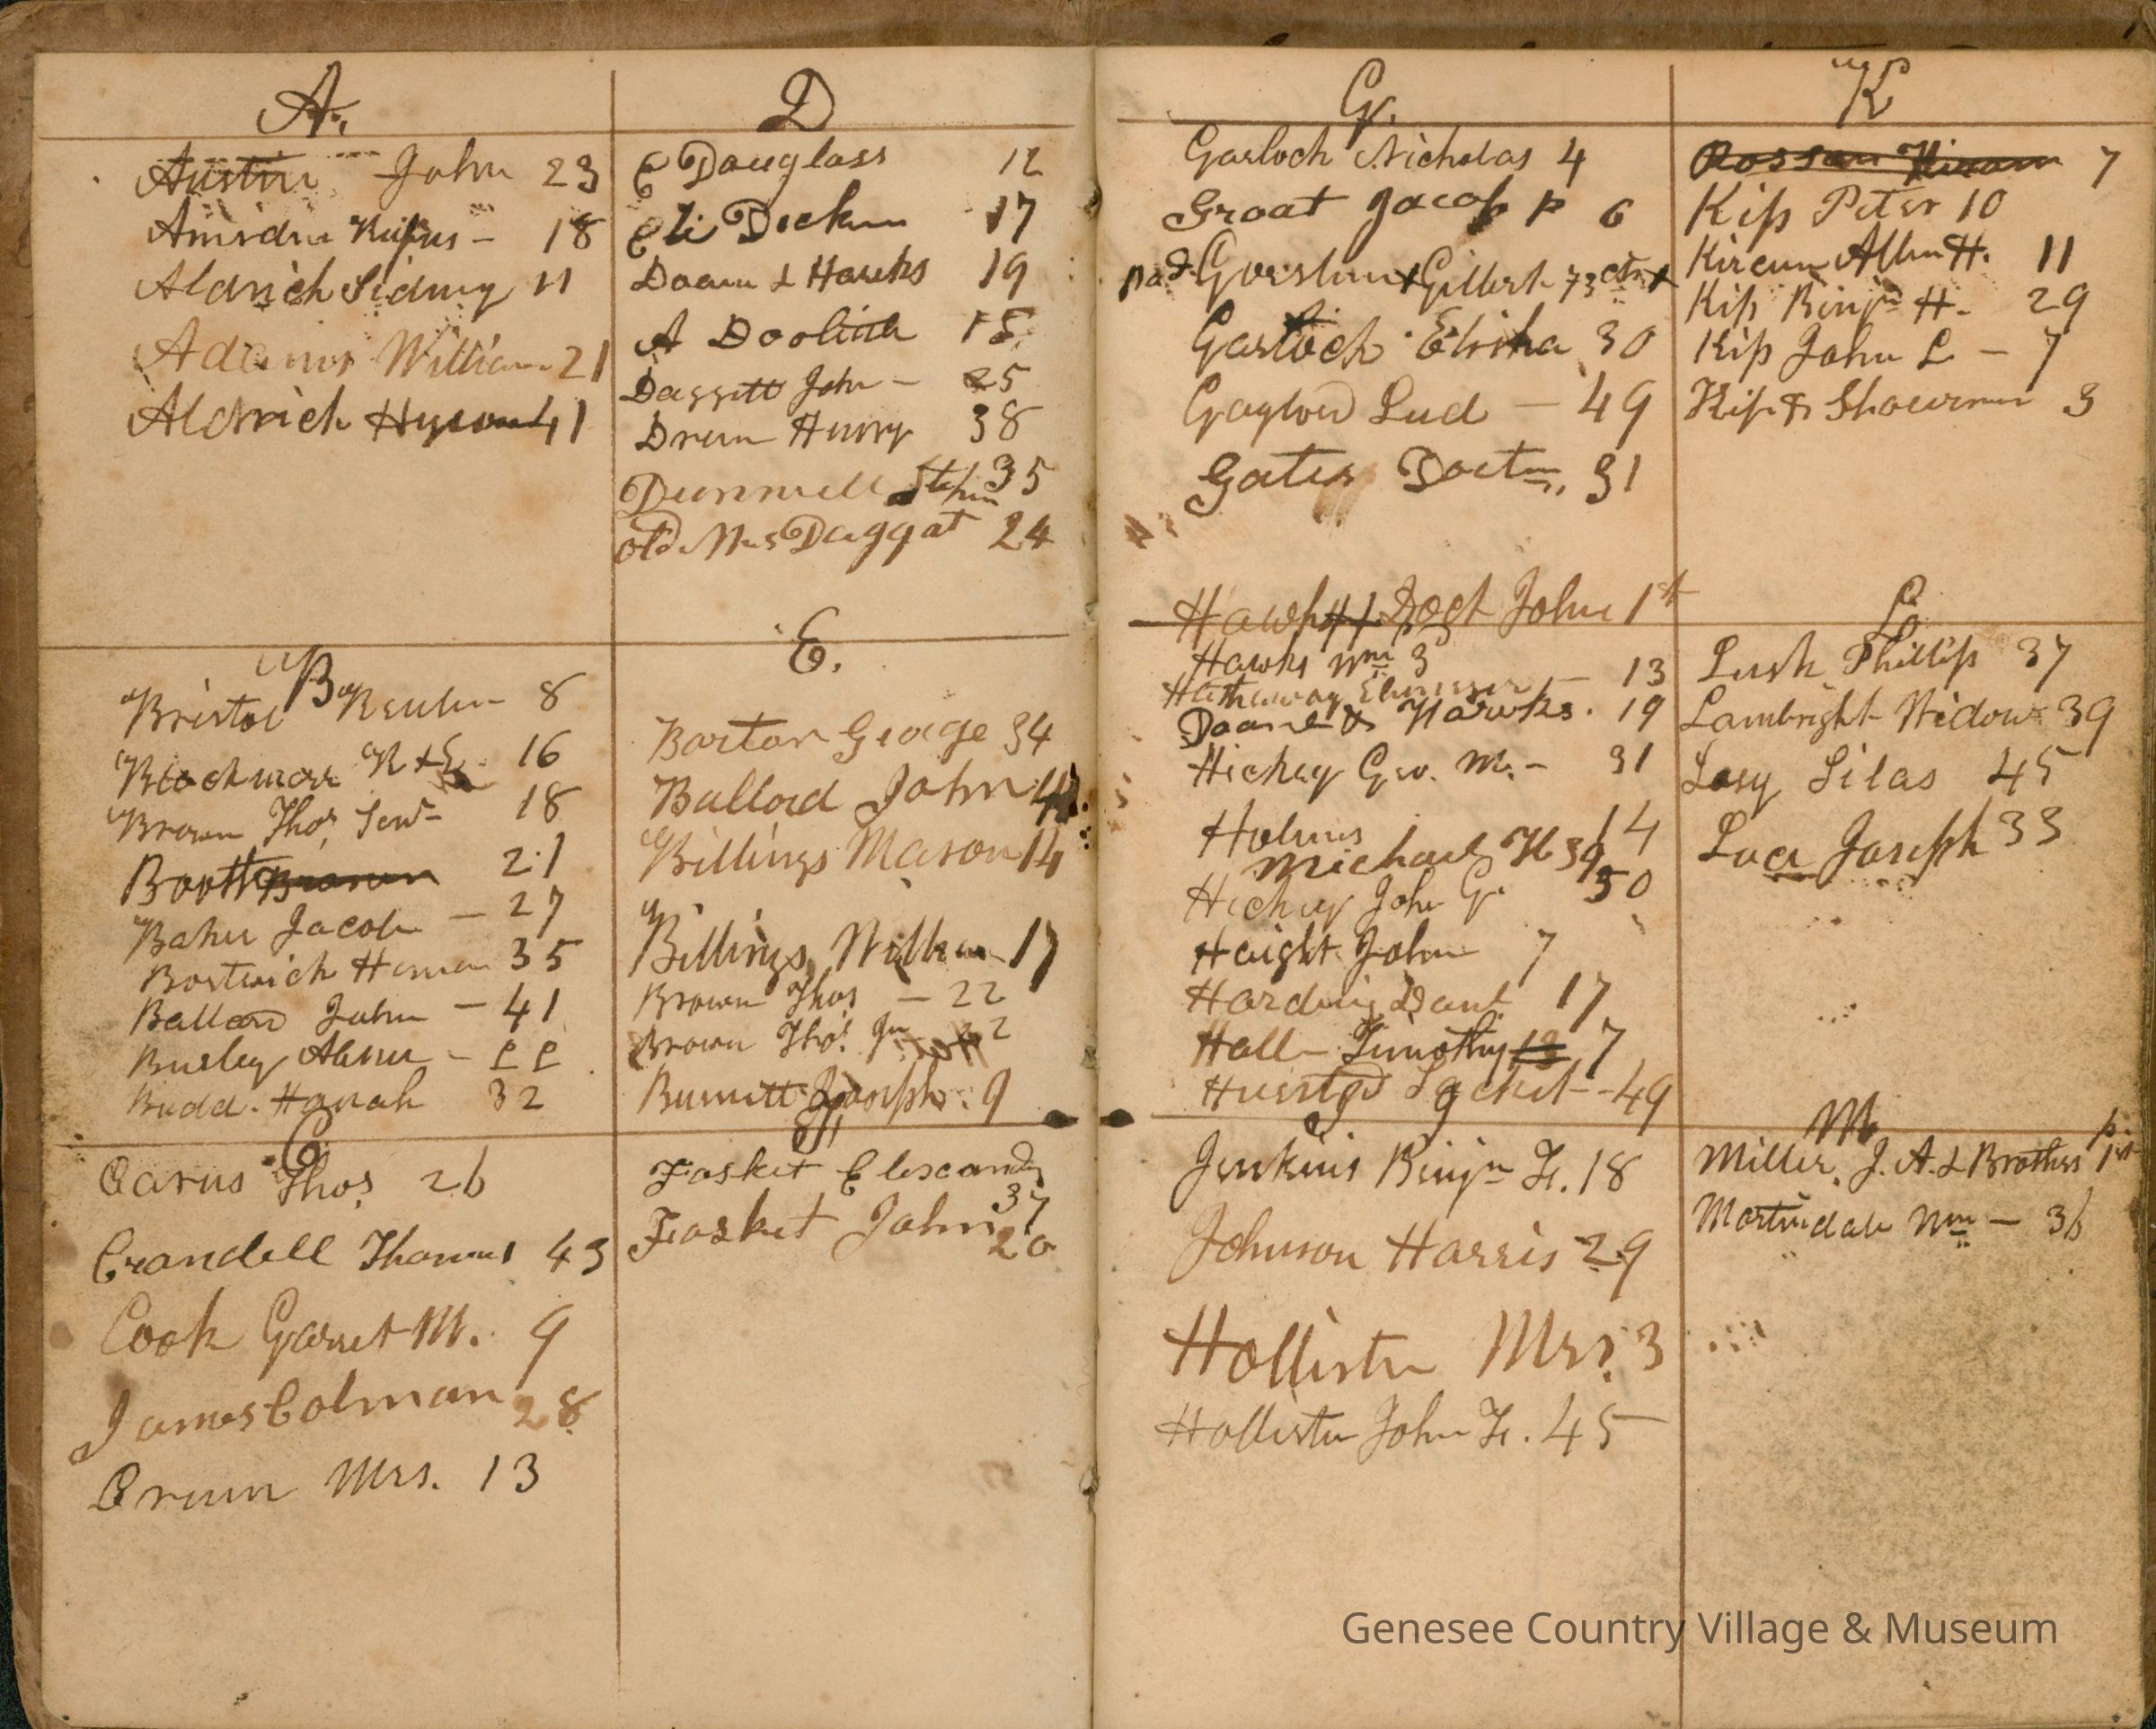 A.
Austin John 23
Amsdn Rufus - 18
Aldrich Sidney 11
Adams William 21
Aldrich 41
B
Bristol Reuben 8
Blackmarr R & E 16
Brown Thos Senr - 18
Booth Brown 21
Baker Jacob - 27
Bostwich Heman 35
Ballard John - 41
Busley Abner - 22
Budd. Hanah 32
C
Carus Thos 26
Crandell Thomas 43
Cook Garret M. 9
James Colman 28
Crum Mrs. 13
D
E Douglass 12
Eli Decken 17
Doane & Hawks 19
A Doolittle 18
Daggett John - 25
Drum Henry 38
Dunnell Stephen 35
old Mrs Daggat 24
E.
Barton George 34
Ballard John
Billings Mason 14
Billings William 17
Brown Thos - 22
Brown Thos Jnr 2
Burnitt Joseph. 9
F
Fasket Elexander 37
Fasket John 20
G.
Garloch Nicholas 4
Groat Jacob P 6
Gilbert
Garloch Elisha 30
Gaylord Lud - 49
Gates Doctr. 31
Hawks Doct John 1st
Hawks Wm 3
Hathaway Ebenezer - 13
Doane & Hawks. 19
Hickey Geo. M. - 31
Holmes 14
Michael H 39
Hickey John G. 50
Haight John 7
Harding Danl. 17
Hall - Timothy 7
Husted Sacket - 49
J
Jenkins Benjn F. 18
Johnson Harris 29
Hollister Mrs. 3
Hollister John F. 45
K
Rossan Hiram 7
Kip Peter 10
Allen H. 11
Kip Benjn H. 29
Kip John L - 7
Kip & Showerman 3
L
Lush Phillip 37
Lambright Widow 39
Losy Silas 45
Luce Joseph 33
M
Miller. J. A. & Brothers 1st
Martindale Wm - 36
Genesee Country Village & Museum